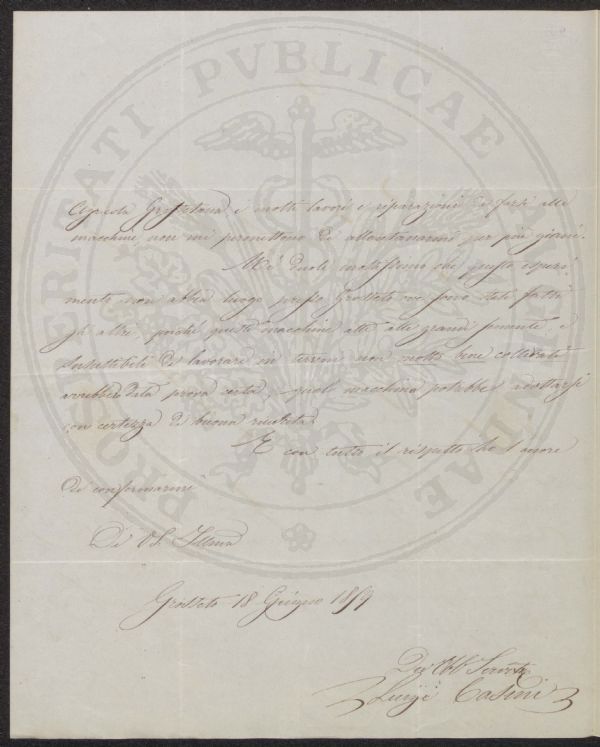 PROSPERITATI PVBLICAE AVGENDAE
Grossetana e molti lavori e riparazioni da farsi alle
macchine, non mi permettono di allontanarmi per più giorni.
Mi duole moltissimo che questo esperi-
mento non abbia luogo presso Grosseto ove sono stati fatti
gli altri, poiché queste macchine atte alle grandi semente, e
suscettibili di lavorare in terreni non molto bene coltivati
avrebbero data prova certa, quale macchina potrebbe adottarsi
con certezza di buona riuscita.
E con tutto il rispetto ho l'onore
di confermarmi
Di VS. Illma
Grosseto 18 Giugno 1859
Luigi Casini